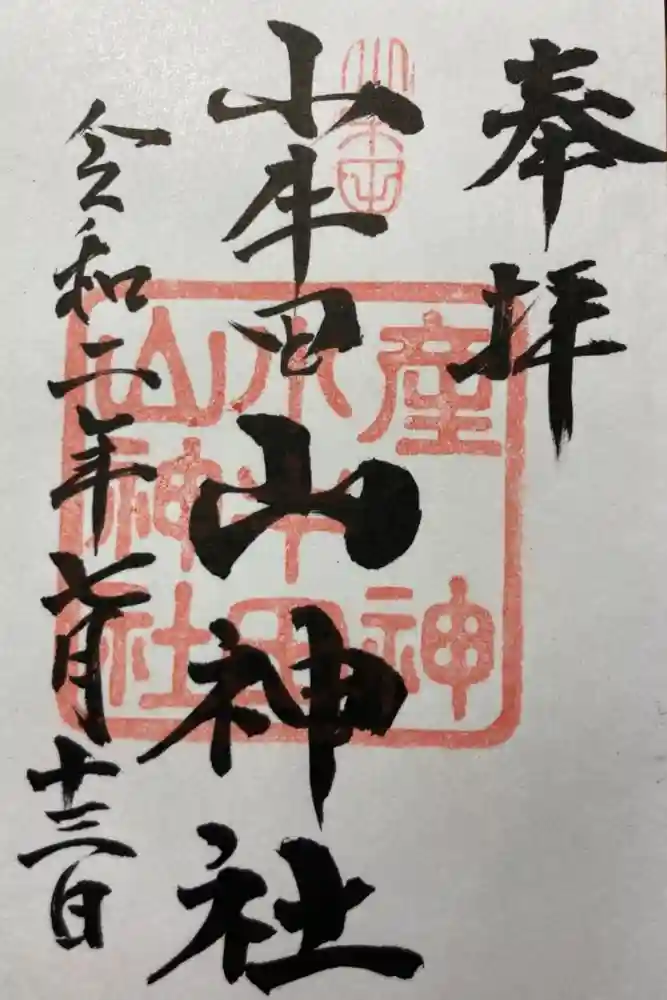 奉拝
小牛田山神社
令和二年七月十三日
産神
小牛田
山神社